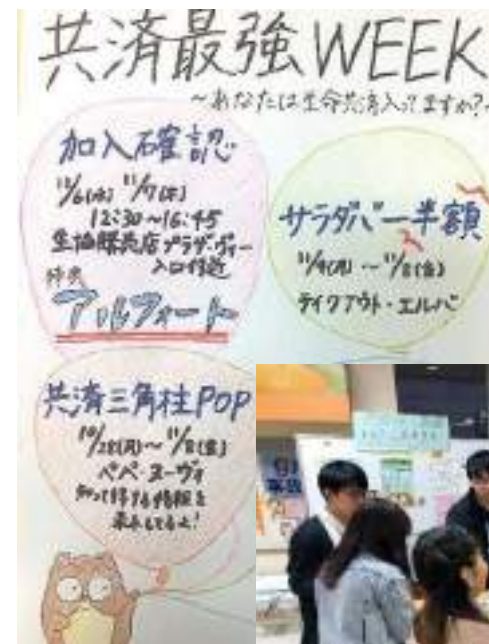 共済最強WEEK
~あなたは生命共済入ってますか?~
加入確認
11/6(水) 11/7(木)
12:30~16:45
生協購売店プラザ・ヴィー
入口付近
特典
アルフォート
サラダバー半額
11/4(月)~11/8(金)
テイクアウト・エルバ
共済三角柱POP
10/28(月)~11/8(金)
ペペ・ヌーヴォ
知って得する情報を